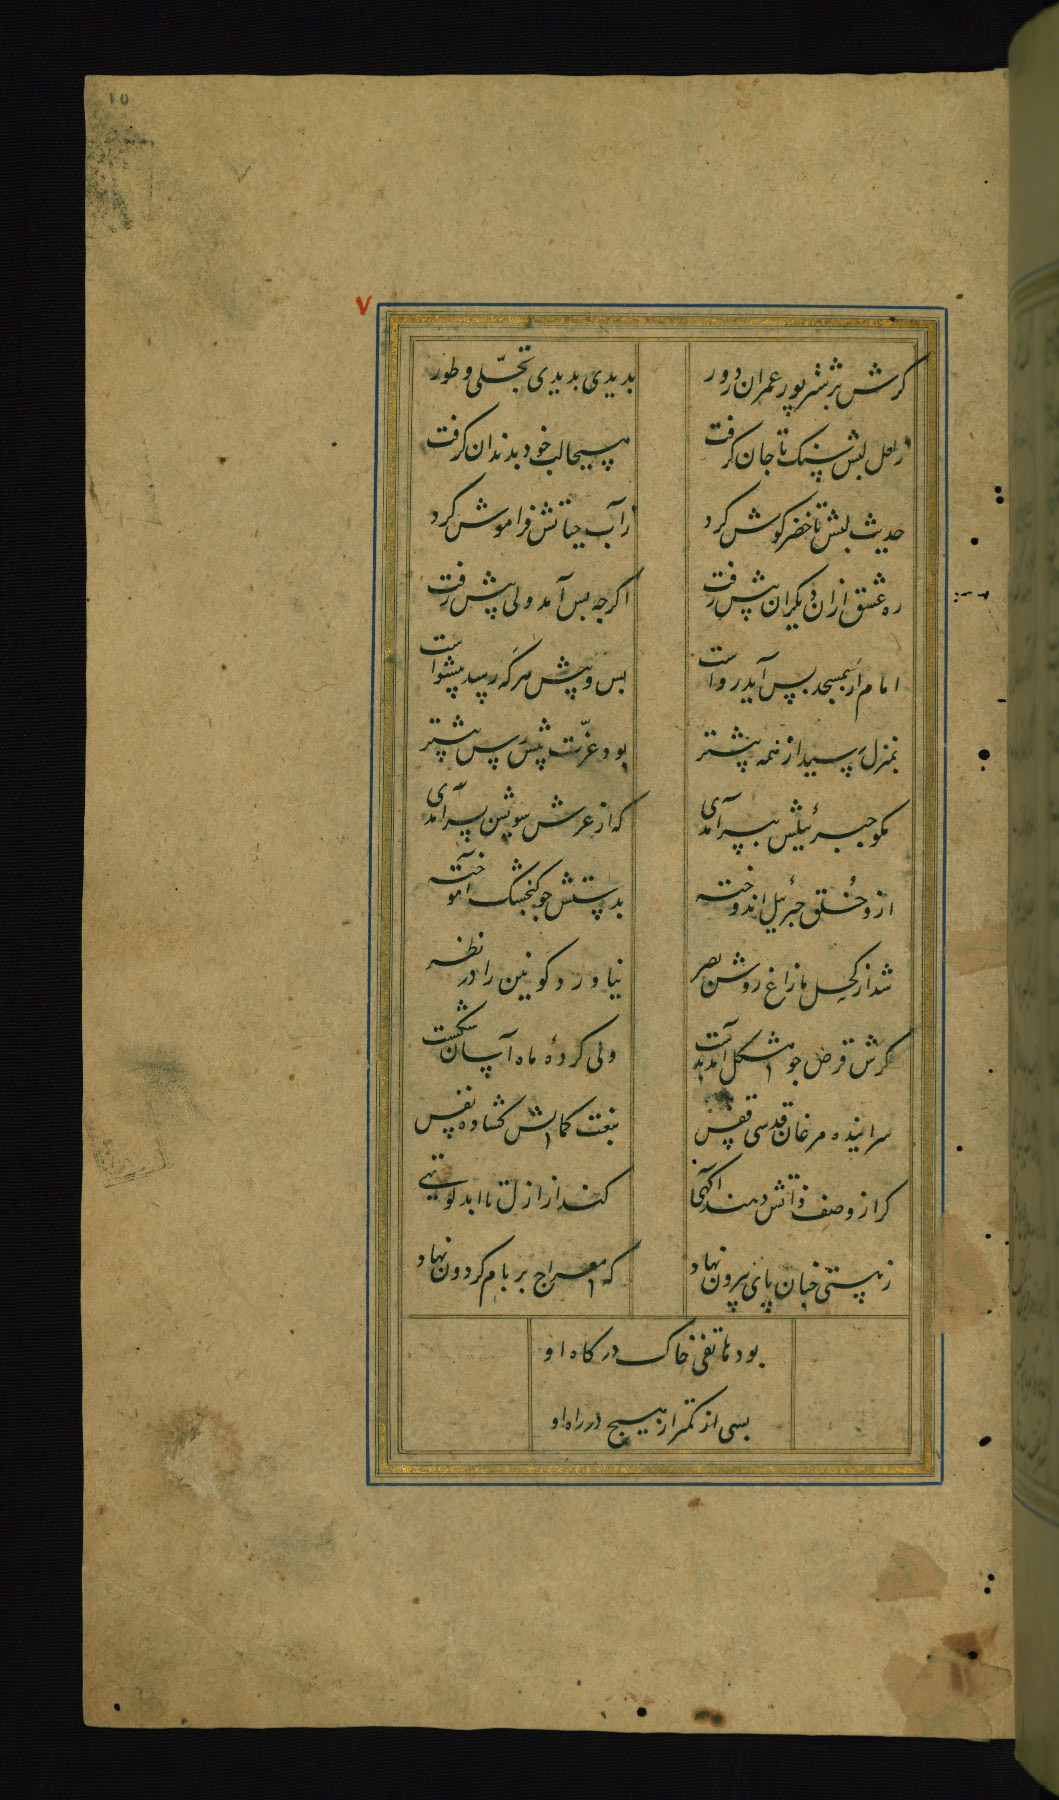 ١٥
٧
کرش بر شر پور عمران درور بدیدی بدیدی تجلّی و طور
زلعل لبش سنک تا جان کرفت مسیحا لب خود بدندان کرفت
حدیث لبش تا خضر کوش کرد زآب حیاتش فراموش کرد
ره عشق ازان دیکران پیش رفت اکرچه پس آمد ولی پیش رفت
امام ار بمسجد پس آید رواست پس و پیش هرکه رسد پیشواست
بمنزل رسید از همه پیشتر بود عزّت پیش پس بیشتر
مکو جبرئیلش ببر آمدی که از عرش سویش سر آمدی
ازو خُلق جبرئیل اندوخته بدستش جو کنجشک آموخته
شد از کحل مازاغ روشن بصر نیاورد کونین را در نظر
کرش قرص جو مشکل آمد بدست ولی کردهٔ ماه آسان شکست
سراینده مرغان قدسی قفس بنعت کمالش کشاده نفس
کر از وصف ذاتش دهند آکهی کند از ازل تا ابد کوتهی
زپستی چنان پای بیرون نهاد که معراج بر بام کردون نهاد
بود هاتفی خاک درکاه او
بسی از کمتر از هیچ در راه او